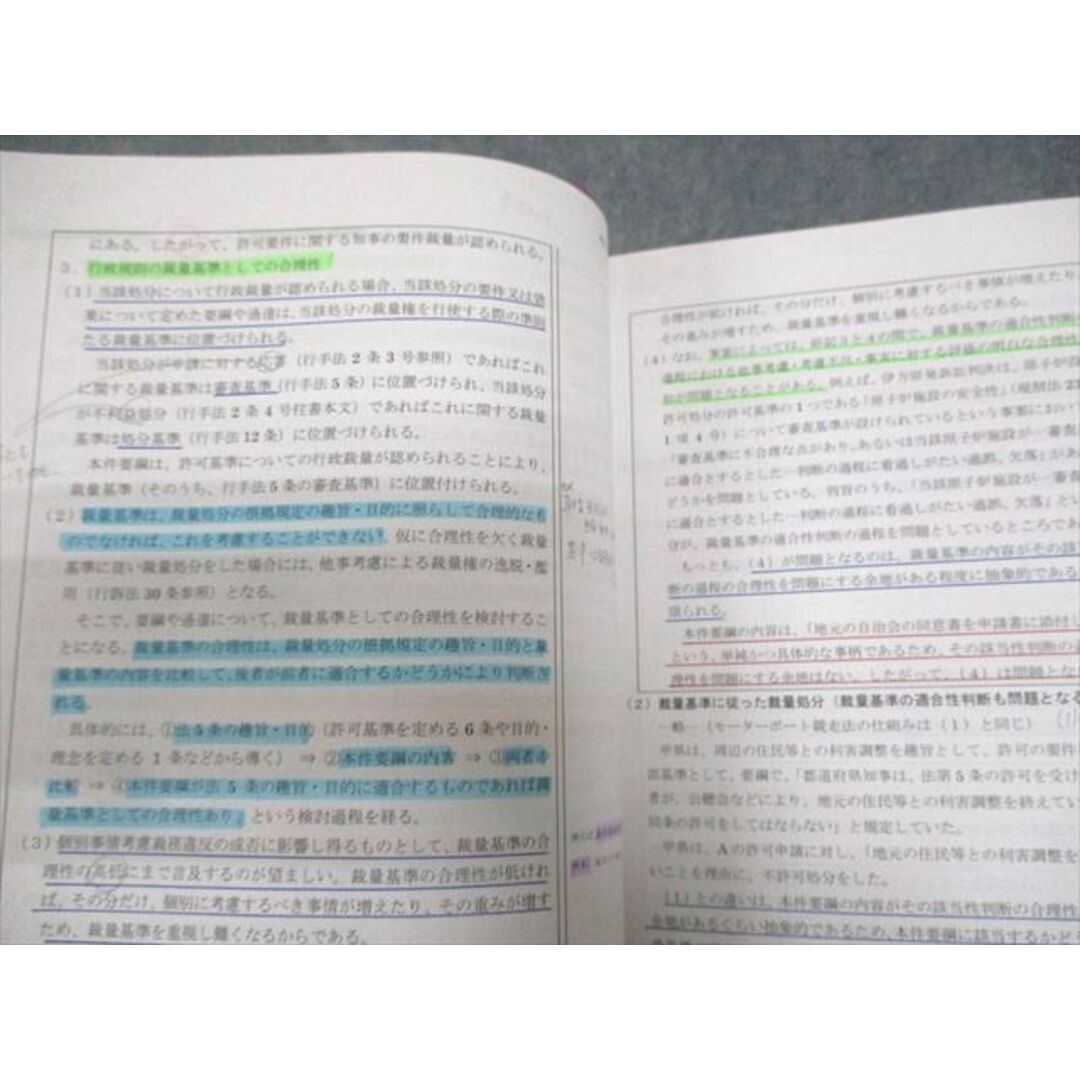 にある。したがって、許可要件に関する知事の要件裁量が認められる。
3. 行政規則の裁量基準としての合理性
(1) 当該処分について行政裁量が認められる場合、当該処分の要件又は効
果について定めた要綱や通達は、当該処分の裁量権を行使する際の準則
たる裁量基準に位置づけられる。
当該処分が申請に対する応答(行手法2条3号参照)であればこれ
に関する裁量基準は審査基準(行手法5条)に位置づけられ、当該処分
が不利益処分(行手法2条4号柱書本文)であればこれに関する裁量
基準は処分基準(行手法12条)に位置づけられる。
本件要綱は、許可基準についての行政裁量が認められることにより、
裁量基準(そのうち、行手法5条の審査基準)に位置付けられる。
(2) 裁量基準は、裁量処分の根拠規定の趣旨・目的に照らして合理的なも
のでなければ、これを考慮することができない。仮に合理性を欠く裁量
基準に従い裁量処分をした場合には、他事考慮による裁量権の逸脱・濫
用(行訴法30条参照)となる。
そこで、要綱や通達について、裁量基準としての合理性を検討するこ
とになる。裁量基準の合理性は、裁量処分の根拠規定の趣旨・目的と裁
量基準の内容を比較して、後者が前者に適合するかどうかにより判断さ
れる。
具体的には、①法5条の趣旨・目的(許可基準を定める6条や目的・
理念を定める1条などから導く)⇒②本件要綱の内容⇒③両者を
比較⇒④本件要綱が法5条の趣旨・目的に適合するものであれば裁
量基準としての合理性あり、という検討過程を経る。
(3) 個別事情考慮義務違反の成否に影響し得るものとして、裁量基準の合
理性の高低にまで言及するのが望ましい。裁量基準の合理性が低けれ
ば、その分だけ、個別に考慮するべき事情が増えたり、その重みが増す
ため、裁量基準を重視し難くなるからである。
合理性が低ければ、その分だけ、個別に考慮するべき事情が増えたり
その重みが増すため、裁量基準を重視し難くなるからである。
(4) なお、事案によっては、前記3と4の間で、裁量基準の適合性判断
過程における他事考慮・考慮不尽・事実に対する評価の明白な合理性
が問題となることがある。例えば、伊方原発訴訟判決は、原子炉設
許可処分の許可基準の1つである「原子炉施設の安全性」(規制法2
1項4号)について審査基準が設けられているという事案におい
「審査基準に不合理な点があり、あるいは当該原子炉施設が…審査
に適合するとした…判断の過程に看過しがたい過誤、欠落」があ
どうかを問題としている。判旨のうち、「当該原子炉施設が…審査
に適合するとした…判断の過程に看過しがたい過誤、欠落」とい
分が、裁量基準の適合性判断の過程を問題としているところであ
もっとも、(4)が問題となるのは、裁量基準の内容がその該
断の過程の合理性を問題にする余地がある程度に抽象的である
限られる。
本件要綱の内容は、「地元の自治会の同意書を申請書に添付し
という、単純かつ具体的な事柄であるため、その該当性判断の
理性を問題にする余地はない。したがって、(4)は問題とな
(2) 裁量基準に従った裁量処分(裁量基準の適合性判断も問題となる
―略―(モーターボート競走法の仕組みは(1)と同じ)
甲県は、周辺の住民等との利害調整を趣旨として、許可の要件
裁基準として、要綱で、「都道府県知事は、法第5条の許可を受け
者が、公聴会などにより、地元の住民等との利害調整を終えてい
同条の許可をしてはならない」と規定していた。
甲県は、Aの許可申請に対し、「地元の住民等との利害調整を
いことを理由に、不許可処分をした。
(1)との違いは、本件要綱の内容がその該当性判断の合理性
余地があるくらい抽象的であるため、本件要綱に該当するかど